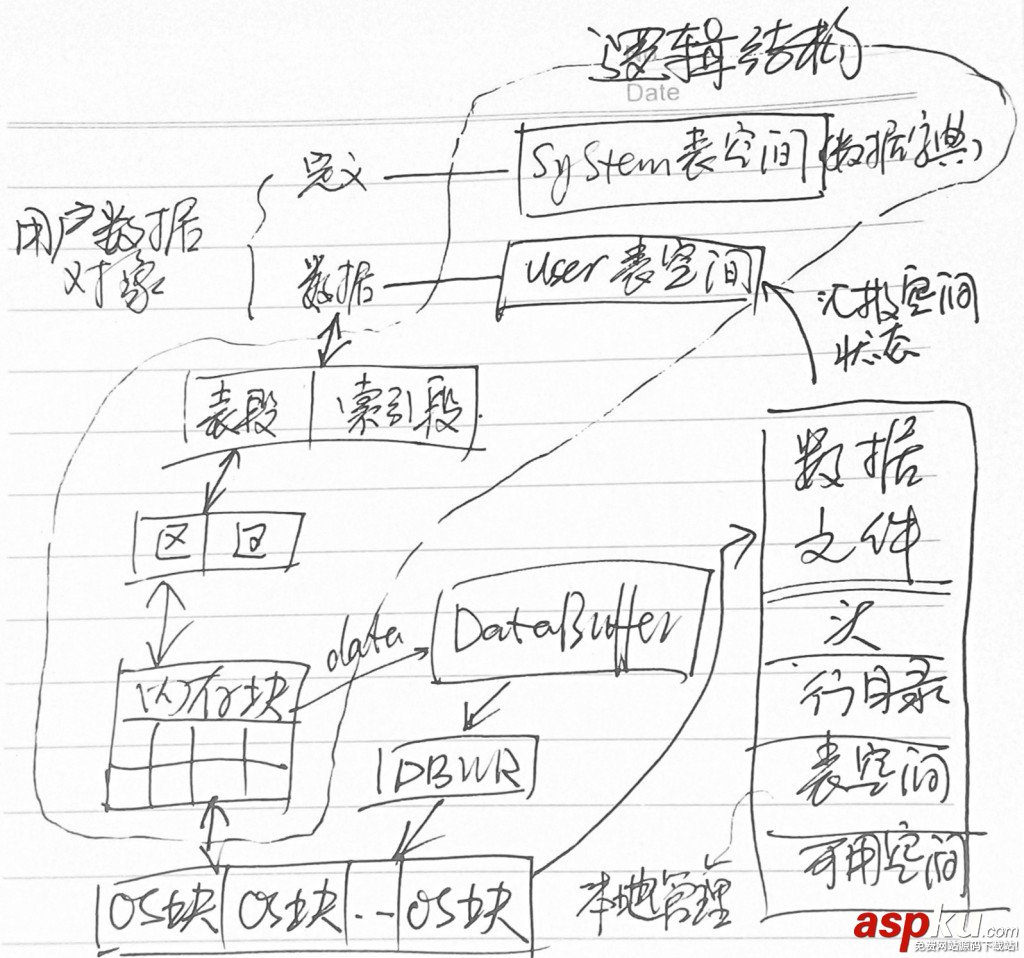 逻辑结构
Date
定义
System表空间
(数据字典)
用户数据
对象
数据
user表空间
汇报空间
状态
表段
索引段
区
区
数据
文件
头
行目录
表空间
可用空间
data
DataBuffer
内存块
DBWR
OS块
OS块
..
OS块
本地管理
aspku.com
免费网站源码下载站!